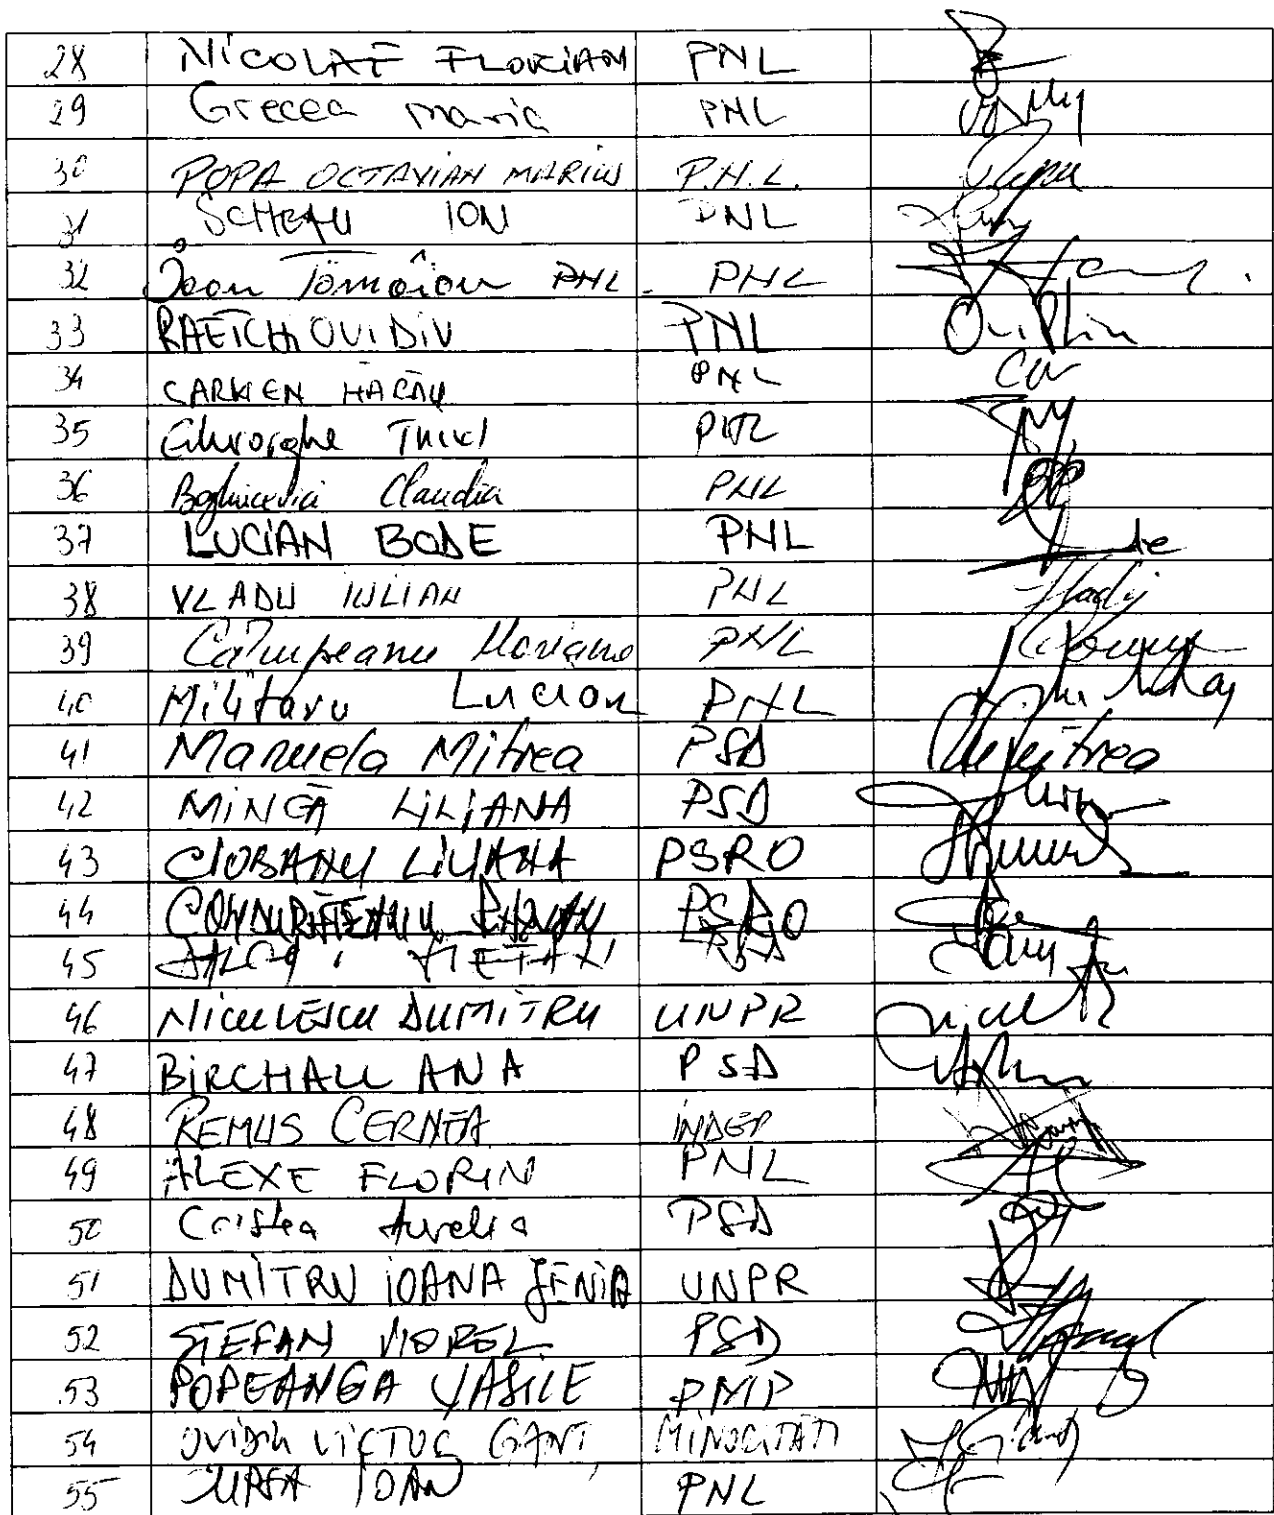 28 NICOLAE FLORIAN PNL
29 Grecea Maria PNL
30 POPA OCTAVIAN MARIUS P.N.L.
31 SCHEAU ION PNL
32 Ioan Tămâian PNL. PNL
33 RAETCHI OVIDIU PNL
34 CARMEN HĂRĂU PNL
35 Gheorghe PNL
36 Boghicevici Claudia PNL
37 LUCIAN BODE PNL
38 VLADU IULIAN PNL
39 Câmpeanu Mariana PNL
40 Militaru Lucian PNL
41 Manuela Mitrea PSD Mitrea
42 MINCĂ LILIANA PSD
43 CIOBANU LILIANA PSRO
44 PSRO
45 PSD
46 NICULESCU DUMITRU UNPR
47 BIRCHALL ANA PSD
48 REMUS CERNEA INDEP
49 ALEXE FLORIN PNL
50 Cristea Aurelia PSD
51 DUMITRU IOANA JENIA UNPR
52 ȘTEFAN VIOREL PSD
53 POPEANGĂ VASILE PMP
54 OVIDIU VICTOR GANȚ MINORITĂȚI
55 IOAN PNL